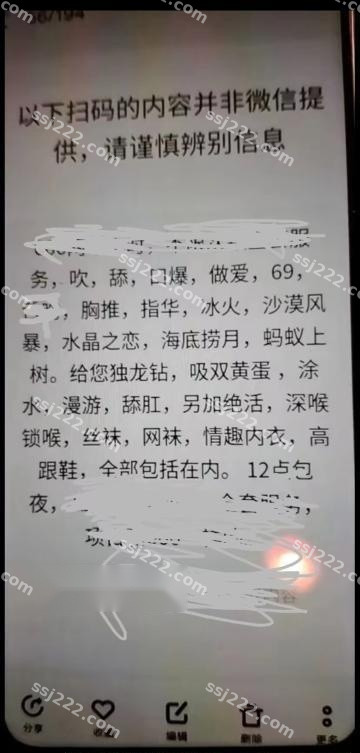 36/194
以下扫码的内容并非微信提
供，请谨慎辨别信息
服
务，吹，舔，口爆，做爱，69，
胸推，指华，冰火，沙漠风
暴，水晶之恋，海底捞月，蚂蚁上
树。给您独龙钻，吸双黄蛋，涂
水，漫游，舔肛，另加绝活，深喉
锁喉，丝袜，网袜，情趣内衣，高
跟鞋，全部包括在内。 12点包
夜，
全套服务，
分享
收藏
编辑
删除
更多
ssj222.com